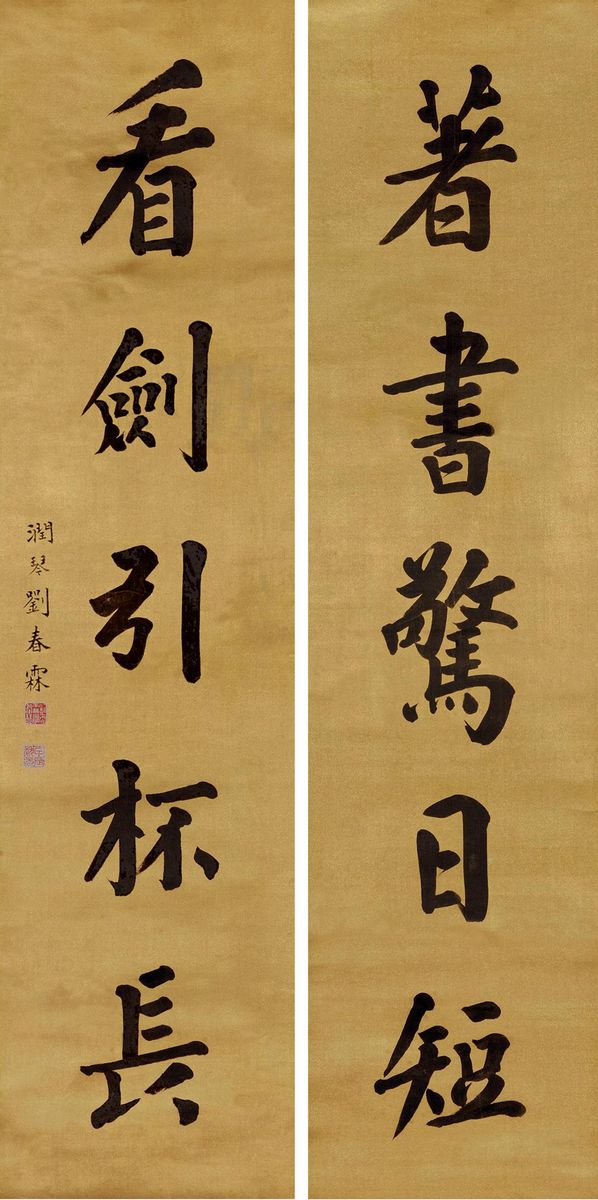 著書驚日短
看劍引杯長
潤琴劉春霖